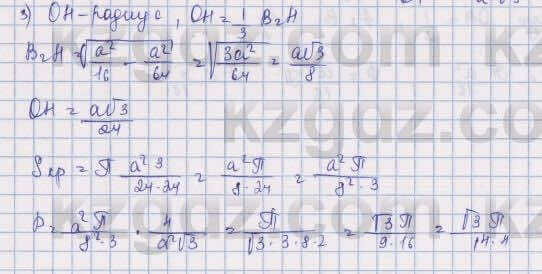 3) OH-радиус, OH = 1/3 B₂H
B₂H = √(a²/16 - a²/64) = √(3a²/64) = a√3/8
OH = a√3/24
Sкр = П a² 3/(24·24) = a² П/(8·24) = a² П/(8²·3)
P = a² П/(8²·3) · 4/(a²√3) = П/(√3·3·8·2) = √3 П/(9·16) = √3 П/(14·4)
kzgaz.com